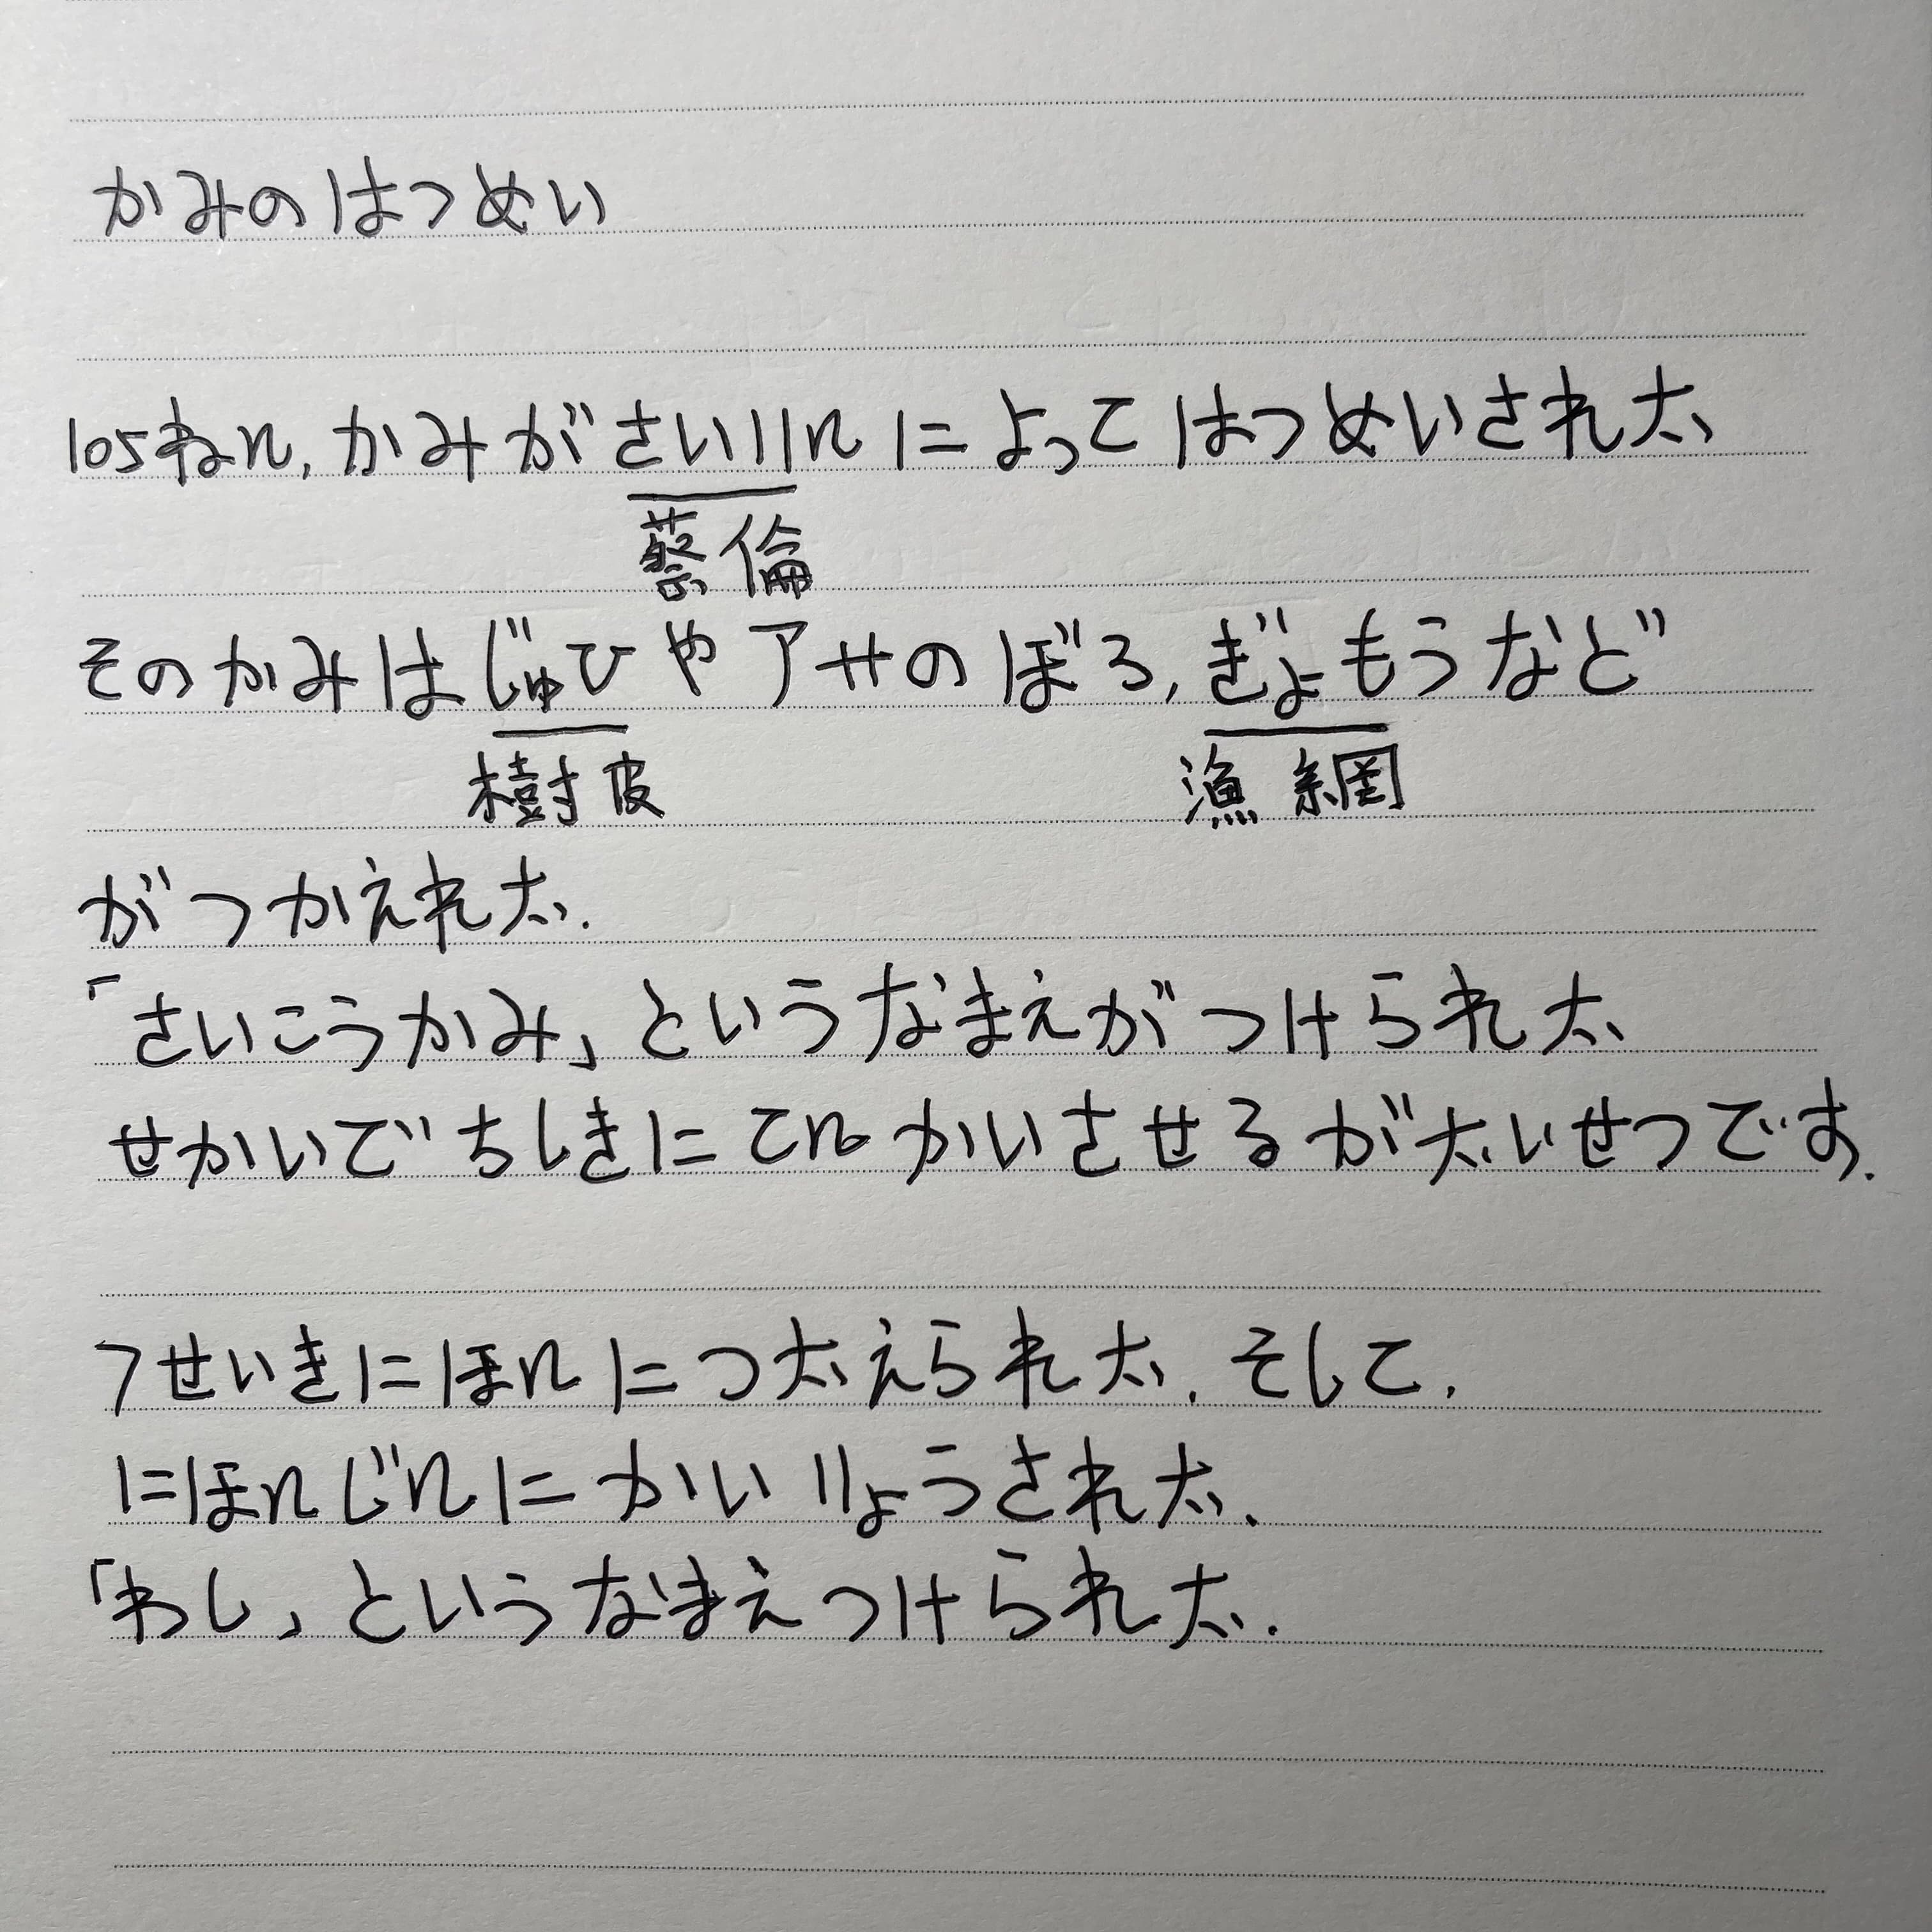 かみのはつめい
105ねん,かみがさいりんによってはつめいされた、
蔡倫
そのかみはじゅひやアサのぼろ,ぎょもうなど
樹皮 漁網
がつかえれた.
「さいこうかみ」というなまえがつけられた、
せかいでちしきにてんかいさせるがたいせつです.
7せいきにほんにつたえられた.そして.
にほんじんにかいりょうされた、
「わし」というなまえつけられた.